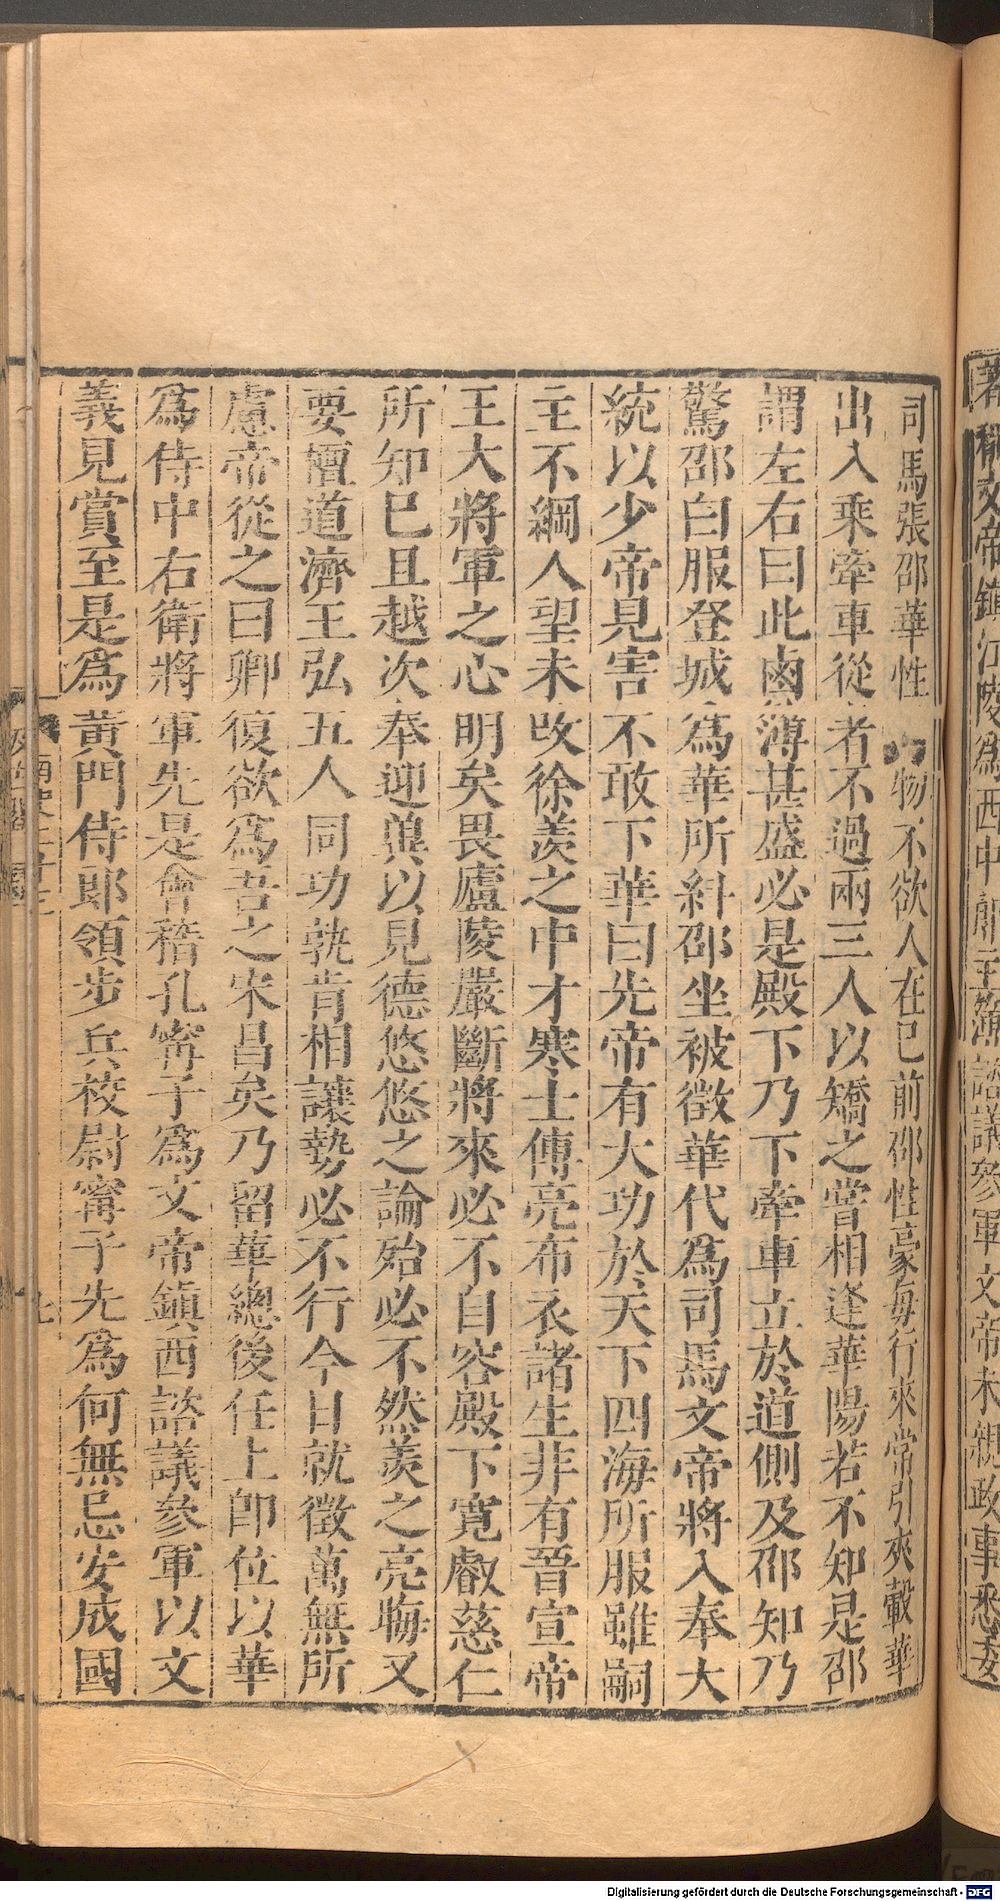 著稱文帝鎮江陵爲西中郎主簿諮議參軍文帝未親政事悉委
司馬張邵華性物不欲人在已前邵性豪每行來常引夾轂華
出入乘牽車從者不過兩三人以矯之嘗相逢華陽若不知是邵
謂左右曰此鹵簿甚盛必是殿下乃下牽車立於道側及邵知乃
驚邵白服登城爲華所糾邵坐被徵華代爲司馬文帝將入奉大
統以少帝見害不敢下華曰先帝有大功於天下四海所服雖嗣
主不綱人望未改徐羨之中才寒士傅亮布衣諸生非有晉宣帝
王大將軍之心明矣畏廬陵嚴斷將來必不自容殿下寬叡慈仁
所知巳且越次奉迎兾以見德悠悠之論殆必不然羨之亮晦又
要檀道濟王弘五人同功孰肯相讓勢必不行今日就徵萬無所
慮帝從之曰卿復欲爲吾之宋昌矣乃留華總後任上卽位以華
爲侍中右衛將軍先是會稽孔甯子爲文帝鎭西諮議參軍以文
義見賞至是爲黃門侍郎領步兵校尉甯子先爲何無忌安成國
南史二十三
七
Digitalisierung gefördert durch die Deutsche Forschungsgemeinschaft - DFG